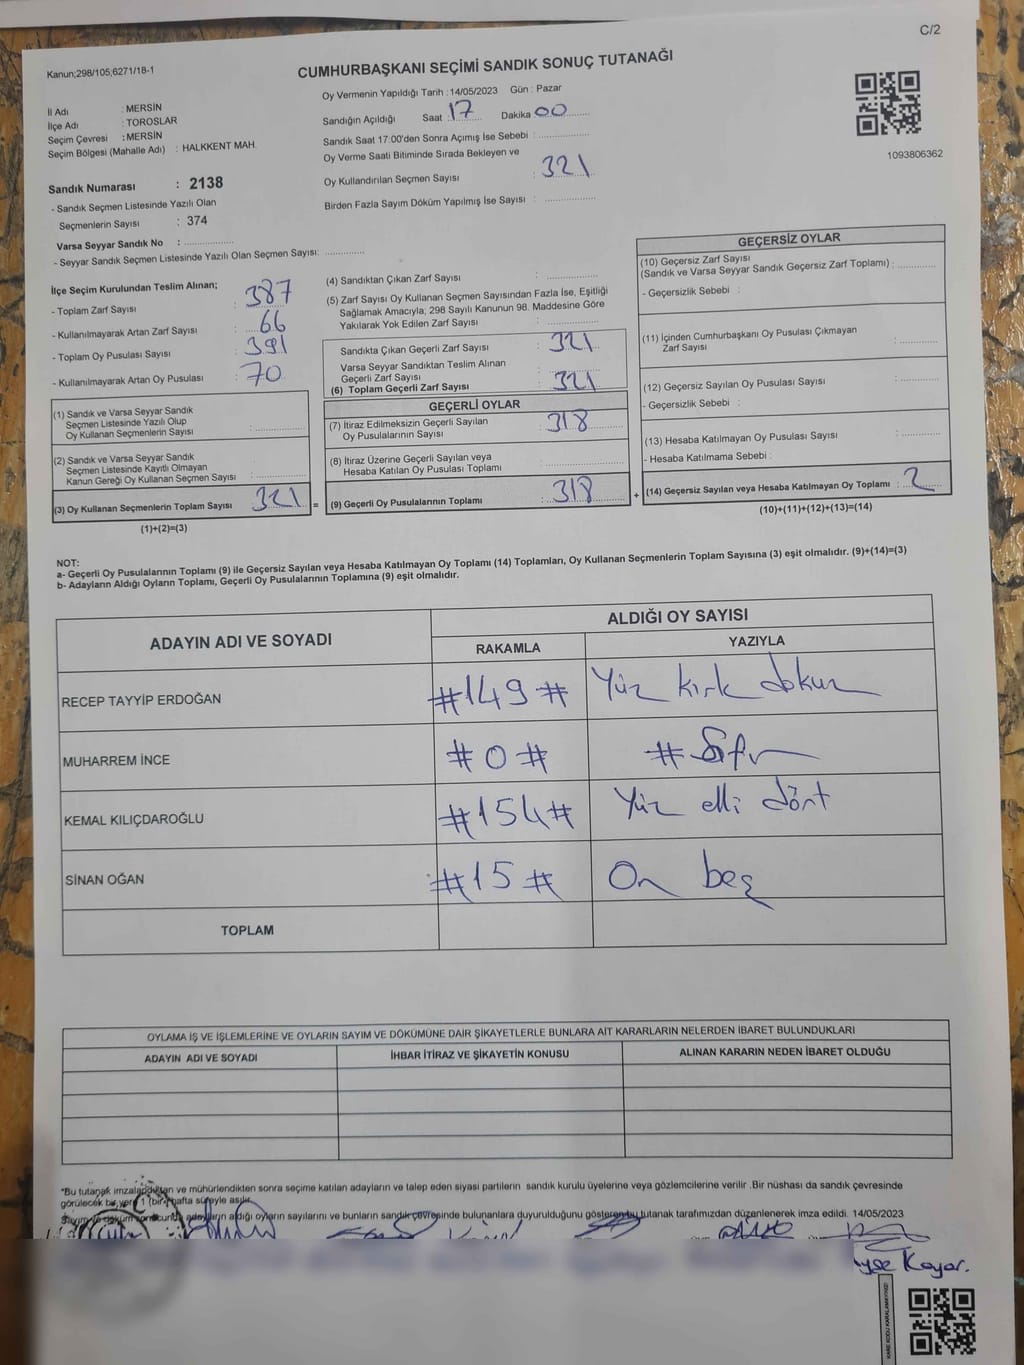 C/2
Kanun;298/105,6271/18-1
CUMHURBAŞKANI SEÇİMİ SANDIK SONUÇ TUTANAĞI
Oy Vermenin Yapıldığı Tarih : 14/05/2023 Gün : Pazar
İl Adı : MERSİN
İlçe Adı : TOROSLAR
Seçim Çevresi : MERSİN
Seçim Bölgesi (Mahalle Adı) : HALKKENT MAH.
Sandığın Açıldığı Saat : 17 Dakika 00
Sandık Saat 17:00'den Sonra Açımış İse Sebebi :
Oy Verme Saati Bitiminde Sırada Bekleyen ve
Oy Kullandırılan Seçmen Sayısı : 321
Birden Fazla Sayım Döküm Yapılmış İse Sayısı :
1093806362
Sandık Numarası : 2138
- Sandık Seçmen Listesinde Yazılı Olan
Seçmenlerin Sayısı : 374
Varsa Seyyar Sandık No :
- Seyyar Sandık Seçmen Listesinde Yazılı Olan Seçmen Sayısı:
İlçe Seçim Kurulundan Teslim Alınan;
- Toplam Zarf Sayısı : 387
- Kullanılmayarak Artan Zarf Sayısı : 66
- Toplam Oy Pusulası Sayısı : 391
- Kullanılmayarak Artan Oy Pusulası : 70
(1) Sandık ve Varsa Seyyar Sandık
Seçmen Listesinde Yazılı Olup
Oy Kullanan Seçmenlerin Sayısı :
(2) Sandık ve Varsa Seyyar Sandık
Seçmen Listesinde Kayıtlı Olmayan
Kanun Gereği Oy Kullanan Seçmen Sayısı :
(3) Oy Kullanan Seçmenlerin Toplam Sayısı 321 =
(1)+(2)=(3)
(4) Sandıktan Çıkan Zarf Sayısı :
(5) Zarf Sayısı Oy Kullanan Seçmen Sayısından Fazla İse, Eşitliği
Sağlamak Amacıyla; 298 Sayılı Kanunun 98. Maddesine Göre
Yakılarak Yok Edilen Zarf Sayısı :
Sandıkta Çıkan Geçerli Zarf Sayısı : 321
Varsa Seyyar Sandıktan Teslim Alınan
Geçerli Zarf Sayısı :
(6) Toplam Geçerli Zarf Sayısı : 321
GEÇERLİ OYLAR
(7) İtiraz Edilmeksizin Geçerli Sayılan
Oy Pusulalarının Sayısı : 318
(8) İtiraz Üzerine Geçerli Sayılan veya
Hesaba Katılan Oy Pusulası Toplamı :
(9) Geçerli Oy Pusulalarının Toplamı : 318 +
GEÇERSİZ OYLAR
(10) Geçersiz Zarf Sayısı
(Sandık ve Varsa Seyyar Sandık Geçersiz Zarf Toplamı) :
- Geçersizlik Sebebi :
(11) İçinden Cumhurbaşkanı Oy Pusulası Çıkmayan
Zarf Sayısı :
(12) Geçersiz Sayılan Oy Pusulası Sayısı :
- Geçersizlik Sebebi :
(13) Hesaba Katılmayan Oy Pusulası Sayısı :
- Hesaba Katılmama Sebebi :
(14) Geçersiz Sayılan veya Hesaba Katılmayan Oy Toplamı : 2
(10)+(11)+(12)+(13)=(14)
NOT:
a- Geçerli Oy Pusulalarının Toplamı (9) ile Geçersiz Sayılan veya Hesaba Katılmayan Oy Toplamı (14) Toplamları, Oy Kullanan Seçmenlerin Toplam Sayısına (3) eşit olmalıdır. (9)+(14)=(3)
b- Adayların Aldığı Oyların Toplamı, Geçerli Oy Pusulalarının Toplamına (9) eşit olmalıdır.
ADAYIN ADI VE SOYADI ALDIĞI OY SAYISI
RAKAMLA YAZIYLA
RECEP TAYYİP ERDOĞAN #149# Yüz kırk dokuz
MUHARREM İNCE #0# # Sıfır
KEMAL KILIÇDAROĞLU #154# Yüz elli dört
SİNAN OĞAN #15# On beş
TOPLAM
OYLAMA İŞ VE İŞLEMLERİNE VE OYLARIN SAYIM VE DÖKÜMÜNE DAİR ŞİKAYETLERLE BUNLARA AİT KARARLARIN NELERDEN İBARET BULUNDUKLARI
ADAYIN ADI VE SOYADI İHBAR İTİRAZ VE ŞİKAYETİN KONUSU ALINAN KARARIN NEDEN İBARET OLDUĞU
*Bu tutanak imzalandıktan ve mühürlendikten sonra seçime katılan adayların ve talep eden siyasi partilerin sandık kurulu üyelerine veya gözlemcilerine verilir .Bir nüshası da sandık çevresinde
görülecek bir yere 1 (bir) hafta süreyle asılır.
Sayım ve döküm sonucunda adayların aldığı oyların sayılarını ve bunların sandık çevresinde bulunanlara duyurulduğunu gösteren bu tutanak tarafımızdan düzenlenerek imza edildi. 14/05/2023